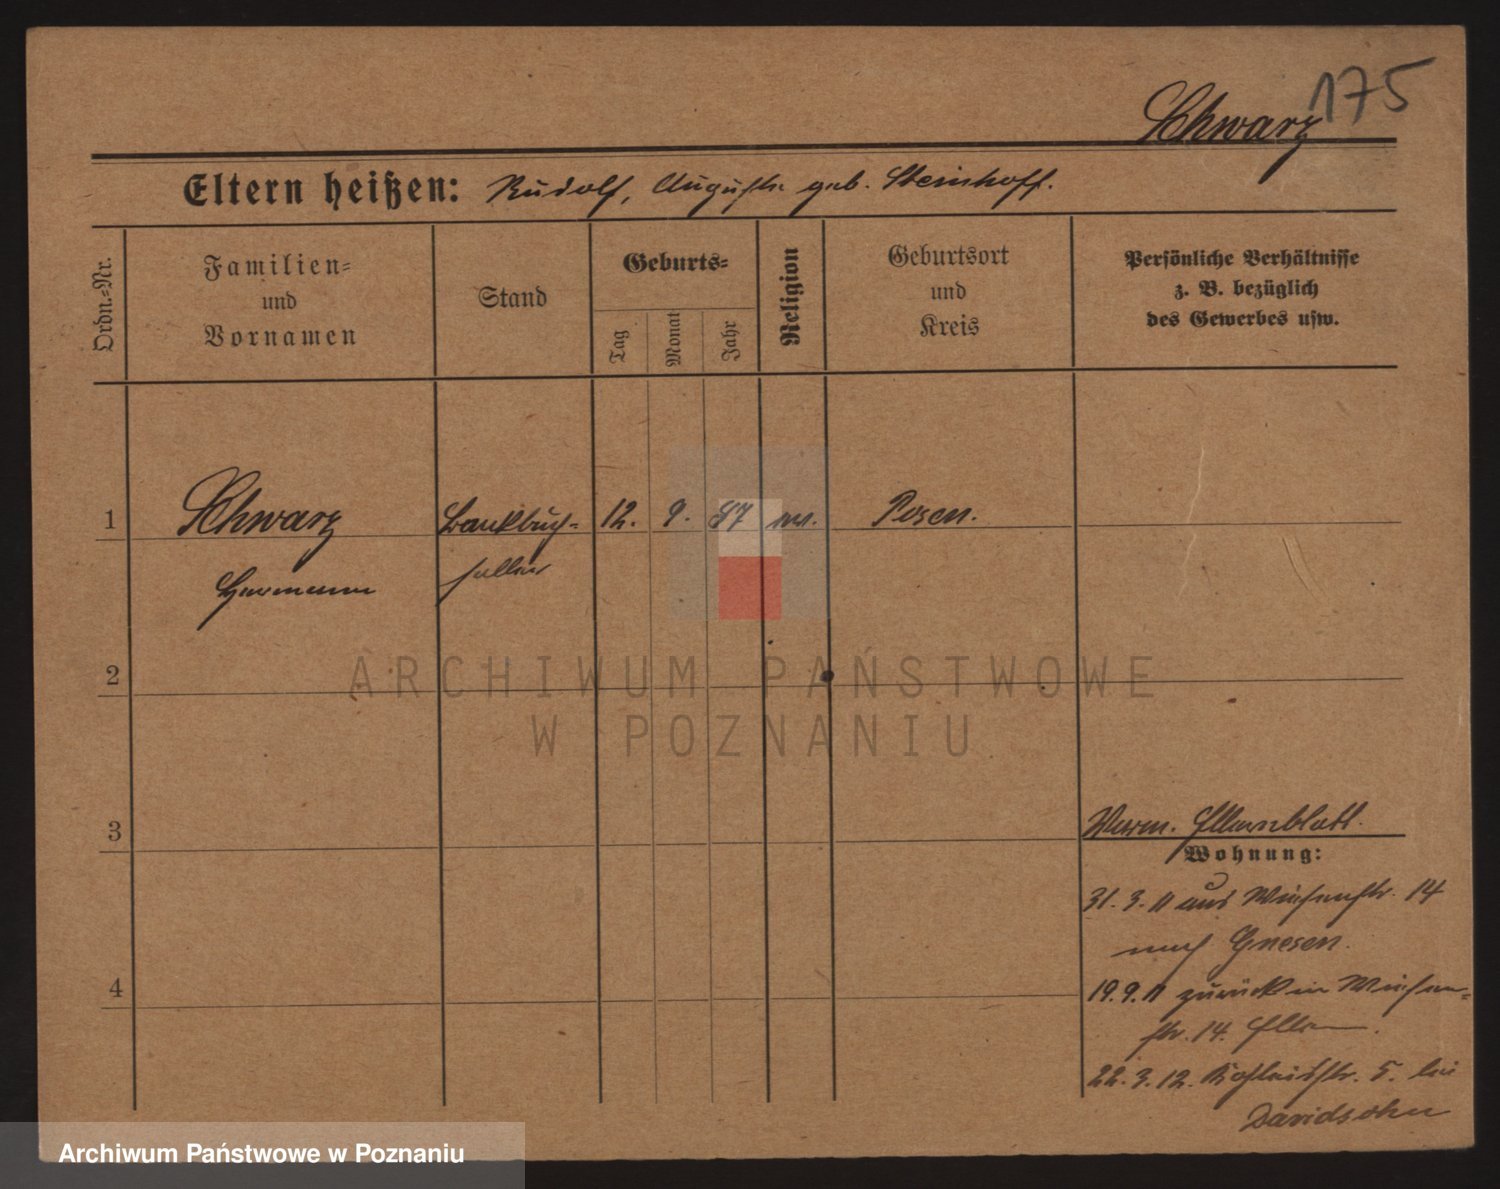 175
Schwarz
Eltern heißen: Rudolf, Auguste geb. Steinhoff.
Ordn.-Nr.
Familien-
und
Vornamen
Stand
Geburts-
Tag
Monat
Jahr
Religion
Geburtsort
und
Kreis
Persönliche Verhältnisse
z. B. bezüglich
des Gewerbes usw.
1 Schwarz Bankbuch- 12. 9. 87 ev. Posen.
Hermann halter
2
3
Verm. Elternblatt.
Wohnung:
31. 3. 11 aus
14
nach Gnesen.
4
19. 9. 11 zurück in
str. 14. Eltern.
22. 3. 12. 5. bei
Davidsohn
ARCHIWUM PAŃSTWOWE
W POZNANIU
Archiwum Państwowe w Poznaniu